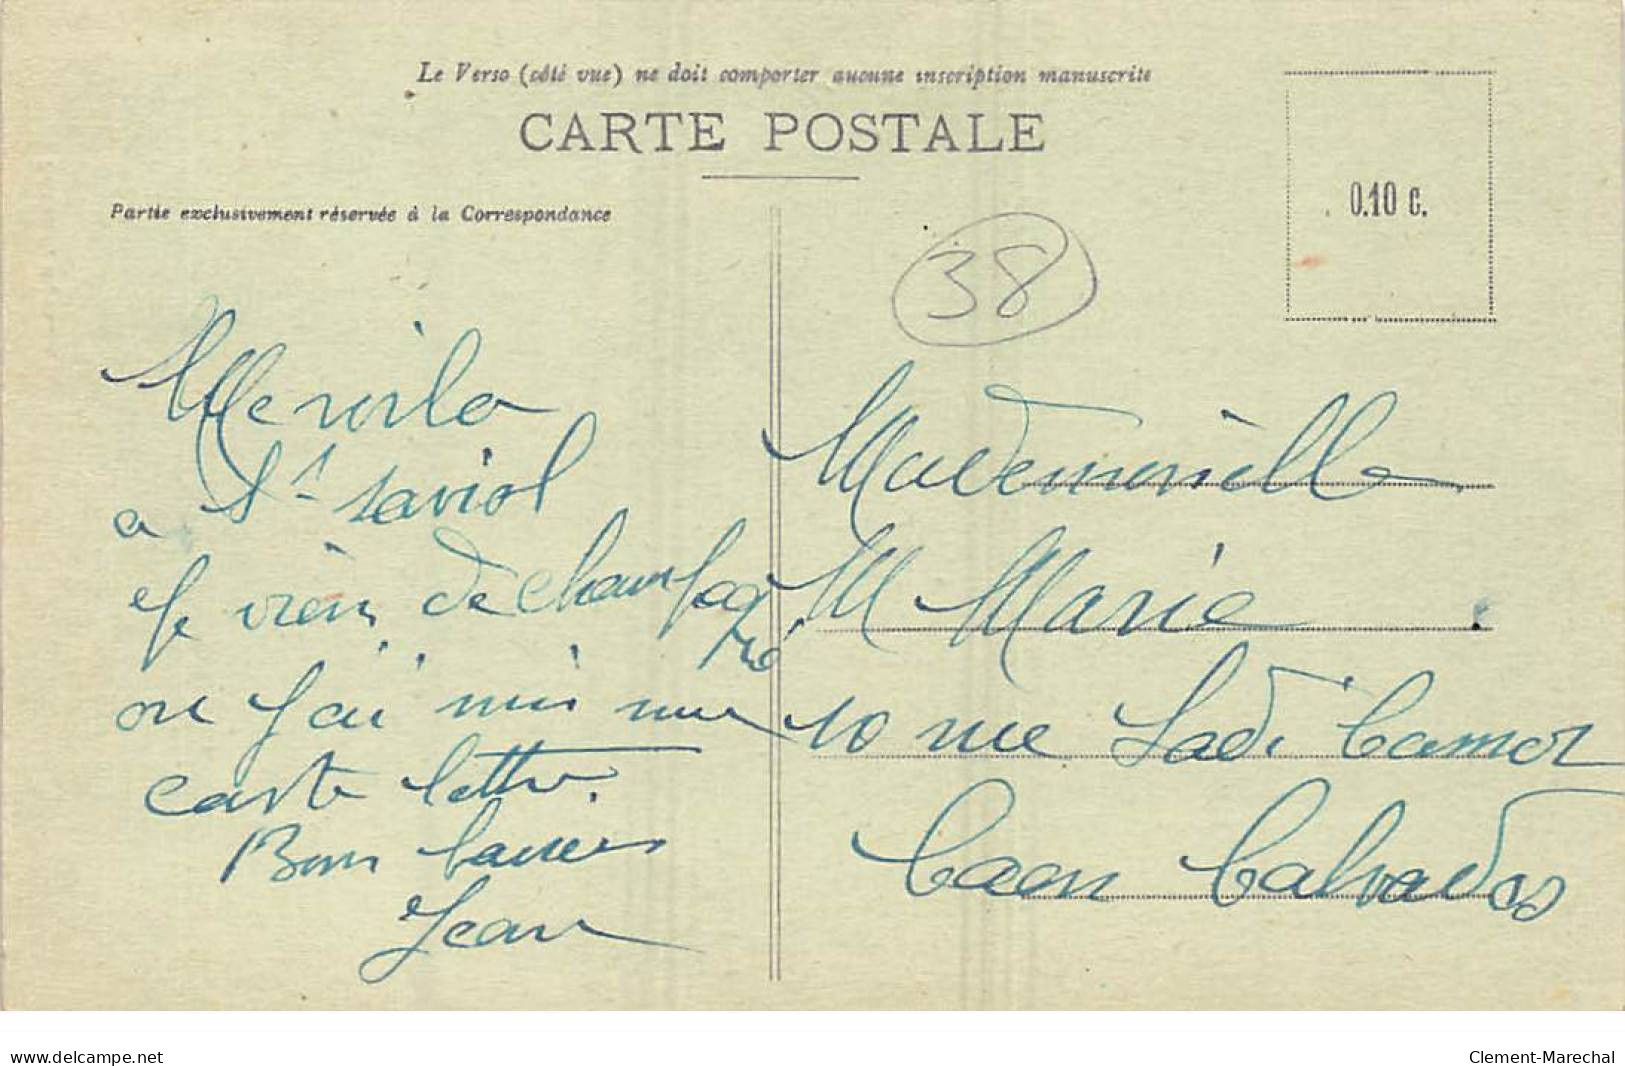 Le Verso (côté vue) ne doit comporter aucune inscription manuscrite
CARTE POSTALE
Partie exclusivement réservée à la Correspondance
0.10 c.
38
Me voila
a St saviol
Je viens de Champag
né
ou J'ai mis une
carte lettre.
Bons baisers
Jean
Mademoiselle
M Marie
10 rue Sadi Carnot
Caen Calvados
www.delcampe.net
Clement-Marechal